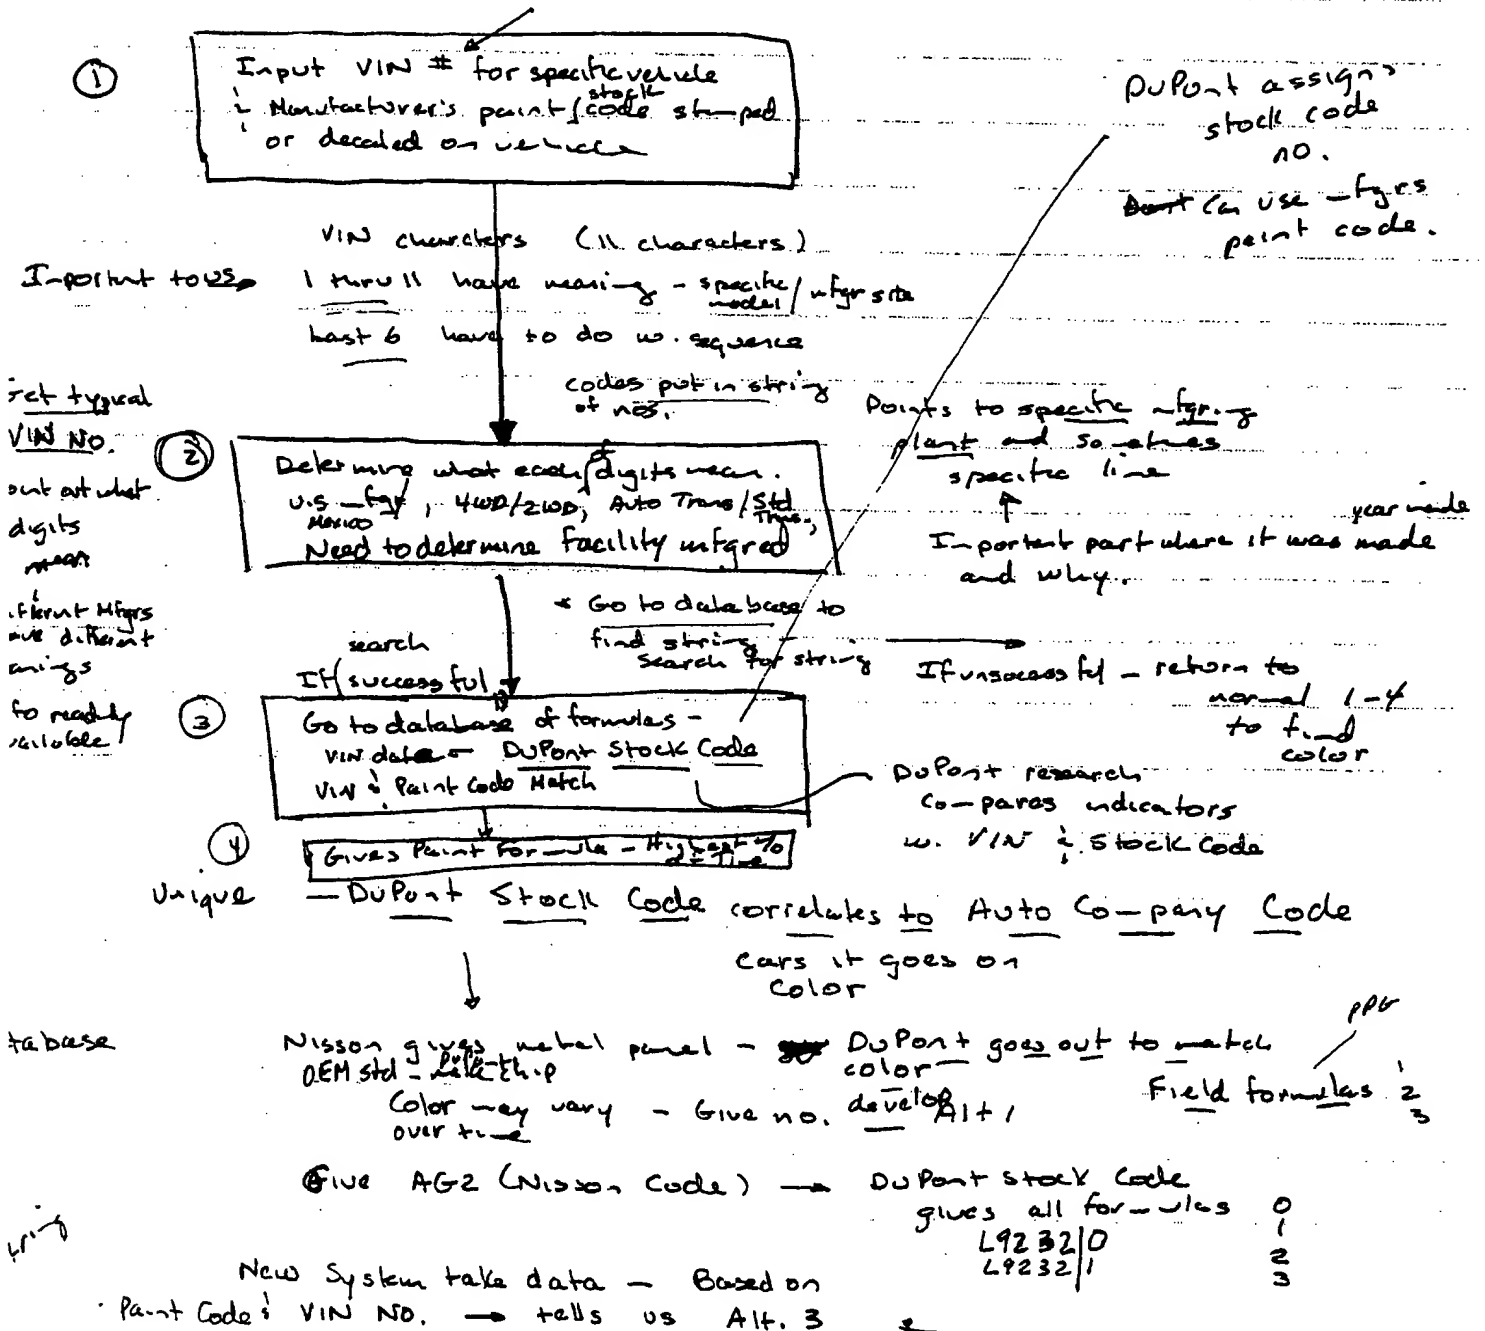 ①
Input VIN # for specific vehicle
& Manufacturer's paint / stock code stamped
or decaled on vehicle
DuPont assigns
stock code
no.
Can use mfgrs
paint code.
VIN charcters (11 characters)
Important to us
1 thru 11 have meaning - specific model / mfgr site
Last 6 have to do w. sequence
codes put in string
of nos.
Get typical
VIN NO.
out what
digits
mean
different Mfgrs
have different
meanings
to readily
available
②
Determine what each / digits mean.
U.S mfgr / Mexico, 4WD/2WD, Auto Trans / Std Trans.,
Need to determine Facility mfgred
Points to specific mfgring
plant and sometimes
specific line
year made
Important part where it was made
and why.
* Go to database to
find string -
search for string
If search successful
If unsuccessful - return to
normal 1-4
to find
color
③
Go to database of formulas -
VIN data - DuPont Stock Code
VIN & Paint Code Match
DuPont research
compares indicators
w. VIN & Stock Code
④
Gives Paint Formula - Highest %
of Time
Unique
- DuPont Stock Code correlates to Auto Company Code
cars it goes on
color
tabase
Nisson gives metal panel - DuPont goes out to match
color
OEM std -
Color may vary - Give no. develop Alt 1
over time
PPG
Field formulas 1
2
3
Give AG2 (Nisson Code) → DuPont Stock Code
gives all formulas 0
L9232|0 1
L9232|1 2
3
tring
New System take data - Based on
Paint Code & VIN NO. → tells us Alt. 3